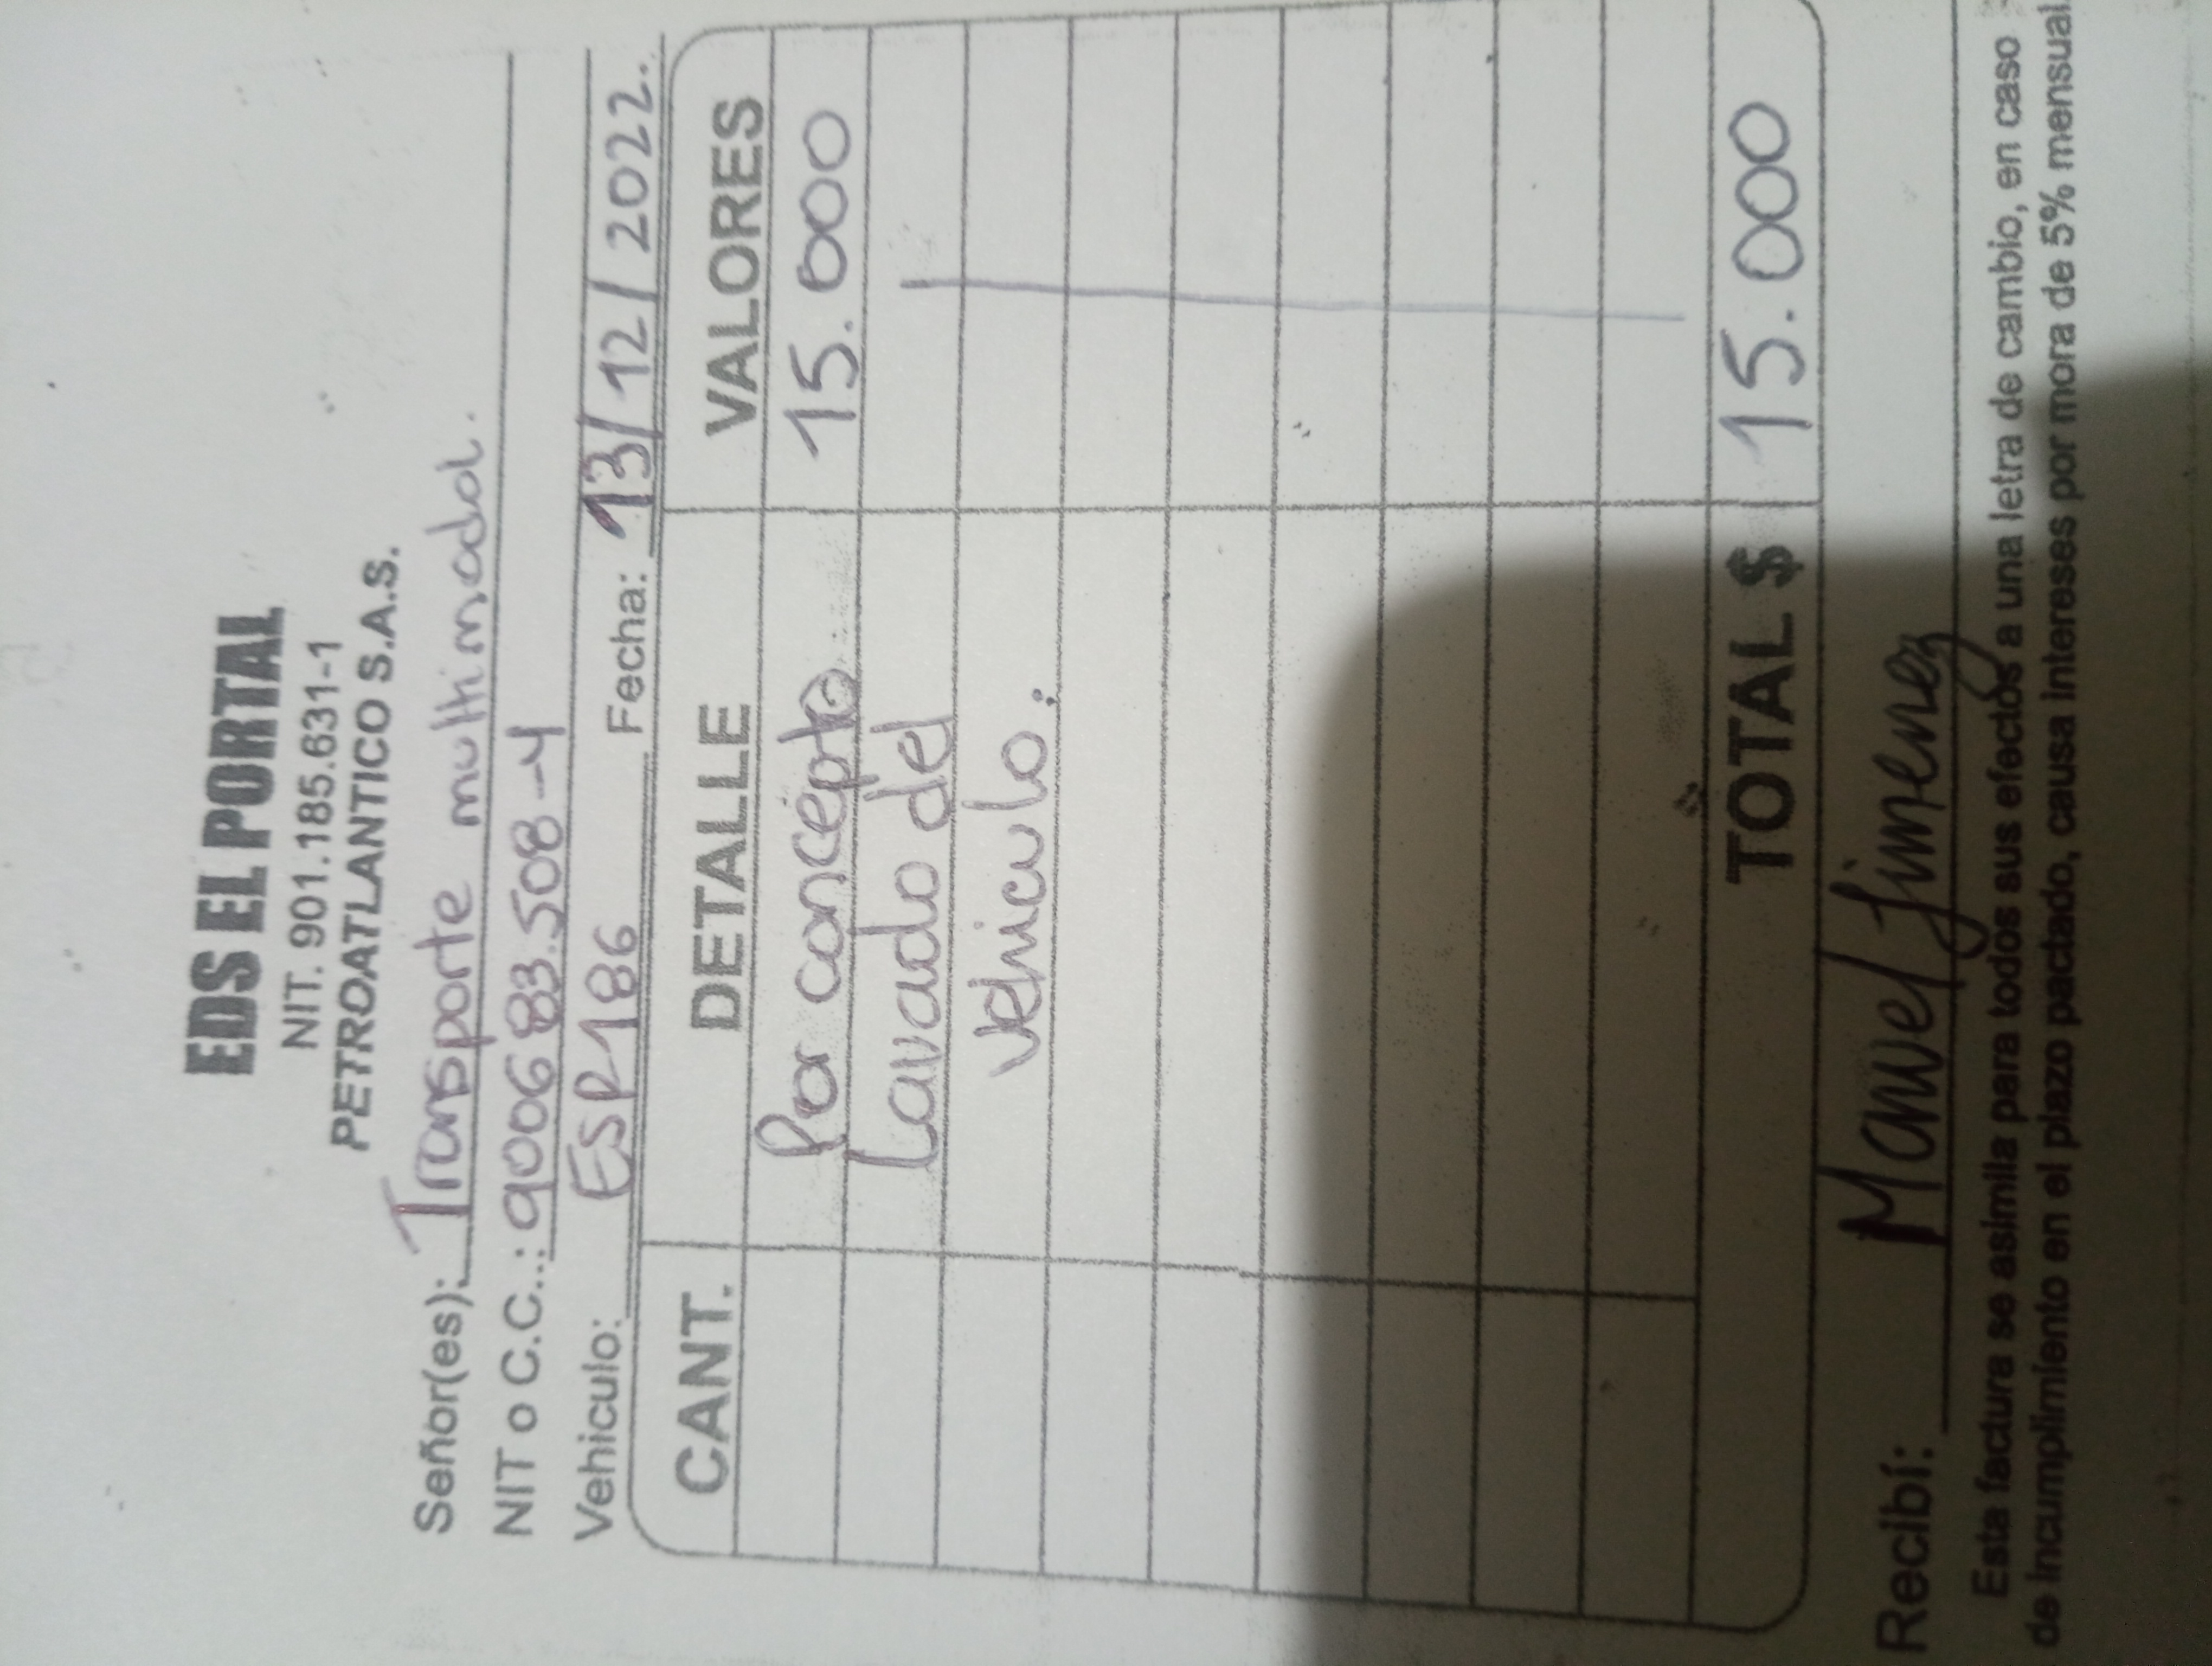 EDS EL PORTAL
NIT. 901.185.631-1
PETROATLANTICO S.A.S.
Señor(es): Transporte multimodal.
NIT o C.C.: 900683.508-4
Vehiculo: ESP186 Fecha: 13/12/2022.
CANT. DETALLE VALORES
Por concepto 15.000
Lavado del
vehiculo.
TOTAL $ 15.000
Recibí: Manuel Jimenez
Esta factura se asimila para todos sus efectos a una letra de cambio, en caso
de incumplimiento en el plazo pactado, causa intereses por mora de 5% mensual.